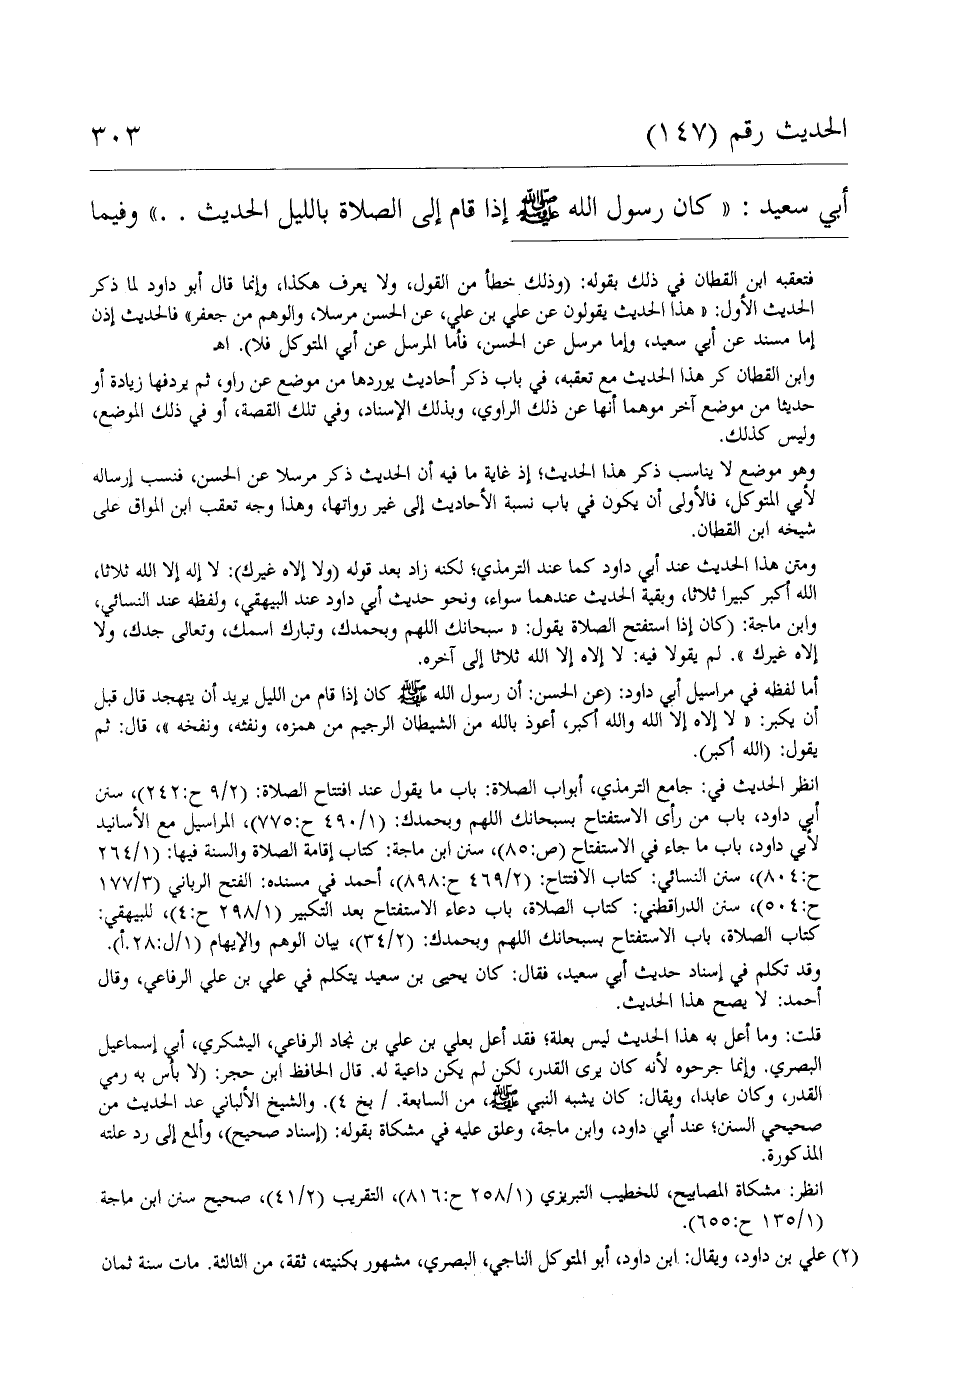 الحديث رقم (١٤٧)
٣٠٣
أبي سعيد : « كان رسول الله ﷺ إذا قام إلى الصلاة بالليل الحديث . .» وفيما
فتعقبه ابن القطان في ذلك بقوله: (وذلك خطأ من القول، ولا يعرف هكذا، وإنما قال أبو داود لما ذكر
الحديث الأول: « هذا الحديث يقولون عن علي بن علي، عن الحسن مرسلا، والوهم من جعفر» فالحديث إذن
إما مسند عن أبي سعيد، وإما مرسل عن الحسن، فأما المرسل عن أبي المتوكل فلا). اهـ
وابن القطان كر هذا الحديث مع تعقبه، في باب ذكر أحاديث يوردها من موضع عن راو، ثم يردفها زيادة أو
حديثا من موضع آخر موهما أنها عن ذلك الراوي، وبذلك الإسناد، وفي تلك القصة، أو في ذلك الموضع،
وليس كذلك.
وهو موضع لا يناسب ذكر هذا الحديث؛ إذ غاية ما فيه أن الحديث ذكر مرسلا عن الحسن، فنسب إرساله
لأبي المتوكل، فالأولى أن يكون في باب نسبة الأحاديث إلى غير رواتها، وهذا وجه تعقب ابن المواق على
شيخه ابن القطان.
ومتن هذا الحديث عند أبي داود كما عند الترمذي؛ لكنه زاد بعد قوله (ولا إلاه غيرك): لا إله إلا الله ثلاثا،
الله أكبر كبيرا ثلاثا، وبقية الحديث عندهما سواء، ونحو حديث أبي داود عند البيهقي، ولفظه عند النسائي،
وابن ماجة: (كان إذا استفتح الصلاة يقول: « سبحانك اللهم وبحمدك، وتبارك اسمك، وتعالى جدك، ولا
إلاه غيرك ». لم يقولا فيه: لا إلاه إلا الله ثلاثا إلى آخره.
أما لفظه في مراسيل أبي داود: (عن الحسن: أن رسول الله ﷺ كان إذا قام من الليل يريد أن يتهجد قال قبل
أن يكبر: « لا إلاه إلا الله والله أكبر، أعوذ بالله من الشيطان الرجيم من همزه، ونفثه، ونفخه »، قال: ثم
يقول: (الله أكبر).
انظر الحديث في: جامع الترمذي، أبواب الصلاة: باب ما يقول عند افتتاح الصلاة: (٩/٢ ح:٢٤٢)، سنن
أبي داود، باب من رأى الاستفتاح بسبحانك اللهم وبحمدك: (٤٩٠/١ ح:٧٧٥)، المراسيل مع الأسانيد
لأبي داود، باب ما جاء في الاستفتاح (ص:٨٥)، سنن ابن ماجة: كتاب إقامة الصلاة والسنة فيها: (٢٦٤/١
ح:٨٠٤)، سنن النسائي: كتاب الافتتاح: (٤٦٩/٢ ح:٨٩٨)، أحمد في مسنده: الفتح الرباني (١٧٧/٣
ح:٥٠٤)، سنن الدراقطني: كتاب الصلاة، باب دعاء الاستفتاح بعد التكبير (٢٩٨/١ ح:٤)، للبيهقي:
كتاب الصلاة، باب الاستفتاح بسبحانك اللهم وبحمدك: (٣٤/٢)، بيان الوهم والإيهام (١/ل:٢٨.أ).
وقد تكلم في إسناد حديث أبي سعيد، فقال: كان يحيى بن سعيد يتكلم في علي بن علي الرفاعي، وقال
أحمد: لا يصح هذا الحديث.
قلت: وما أعل به هذا الحديث ليس بعلة؛ فقد أعل بعلي بن علي بن نجاد الرفاعي، اليشكري، أبي إسماعيل
البصري. وإنما جرحوه لأنه كان يرى القدر، لكن لم يكن داعية له. قال الحافظ ابن حجر: (لا بأس به رمي
القدر، وكان عابدا، ويقال: كان يشبه النبي ﷺ، من السابعة. / بخ ٤). والشيخ الألباني عد الحديث من
صحيحي السنن؛ عند أبي داود، وابن ماجة، وعلق عليه في مشكاة بقوله: (إسناد صحيح)، وألمع إلى رد علته
المذكورة.
انظر: مشكاة المصابيح، للخطيب التبريزي (٢٥٨/١ ح:٨١٦)، التقريب (٤١/٢)، صحيح سنن ابن ماجة
(١٣٥/١ ح:٦٥٥).
(٢) علي بن داود، ويقال: ابن داود، أبو المتوكل الناجي، البصري، مشهور بكنيته، ثقة، من الثالثة. مات سنة ثمان